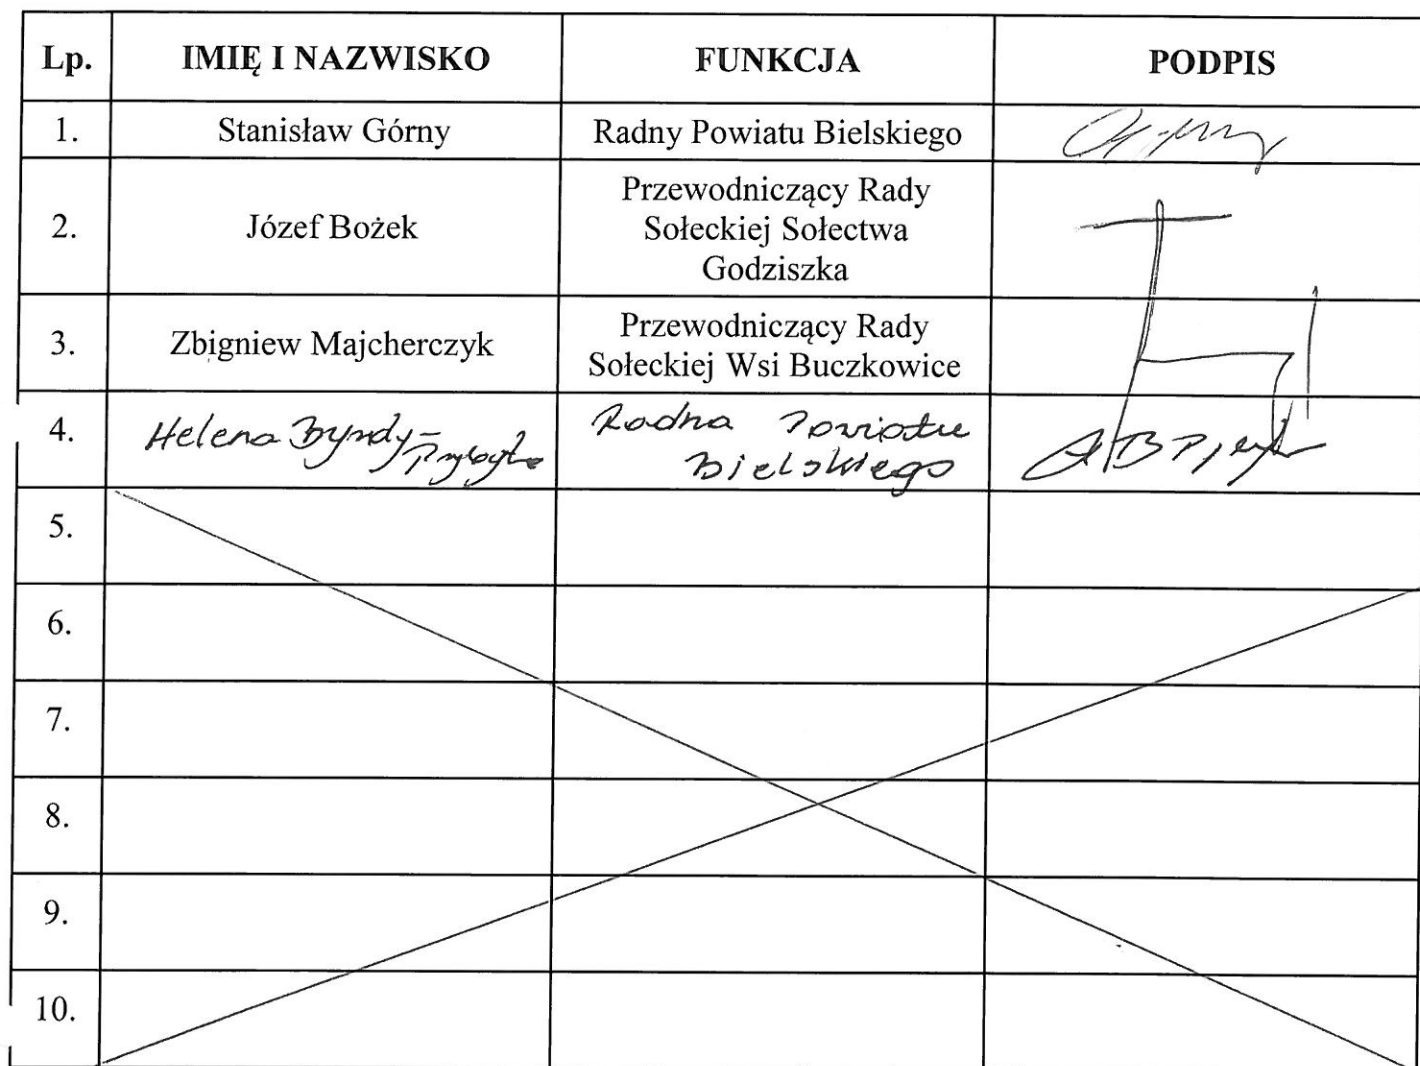 Lp. IMIĘ I NAZWISKO FUNKCJA PODPIS
1. Stanisław Górny Radny Powiatu Bielskiego
2. Józef Bożek Przewodniczący Rady
Sołeckiej Sołectwa
Godziszka
3. Zbigniew Majcherczyk Przewodniczący Rady
Sołeckiej Wsi Buczkowice
4. Helena Byrdy- Radna Powiatu
Bielskiego
5.
6.
7.
8.
9.
10.